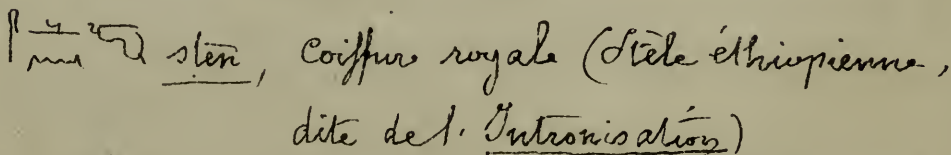 sten, Coiffure royale (Stèle éthiopienne,
dite de l'Intronisation)